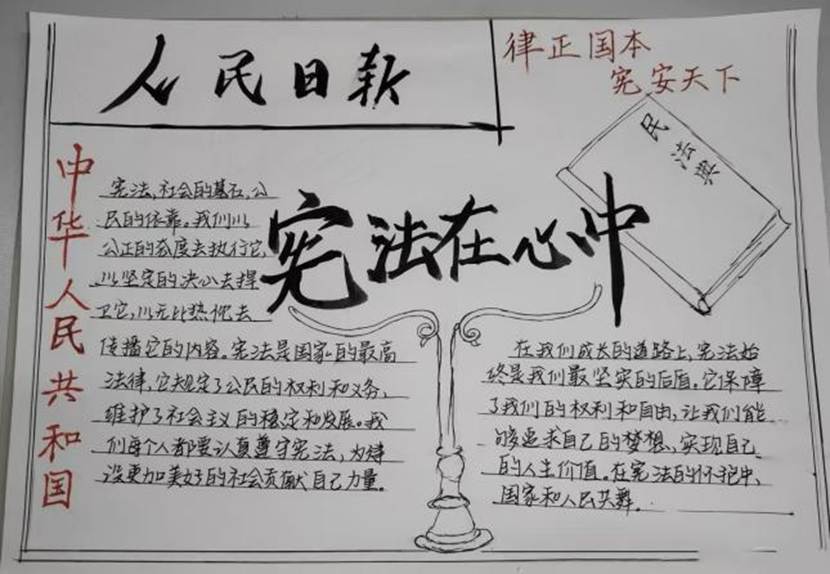 人民日报
律正国本
宪安天下
民法典
中华人民共和国
宪法在心中
宪法,社会的基石,公
民的依靠。我们以
公正的态度去执行它,
以坚定的决心去捍
卫它,以无比热忱去
传播它的内容。宪法是国家的最高
法律,它规定了公民的权利和义务,
维护了社会主义的稳定和发展。我
们每个人都要认真遵守宪法,为建
设更加美好的社会贡献自己力量。
在我们成长的道路上,宪法始
终是我们最坚实的后盾。它保障
了我们的权利和自由,让我们能
够追求自己的梦想,实现自己
的人生价值。在宪法的怀抱中,
国家和人民共舞。